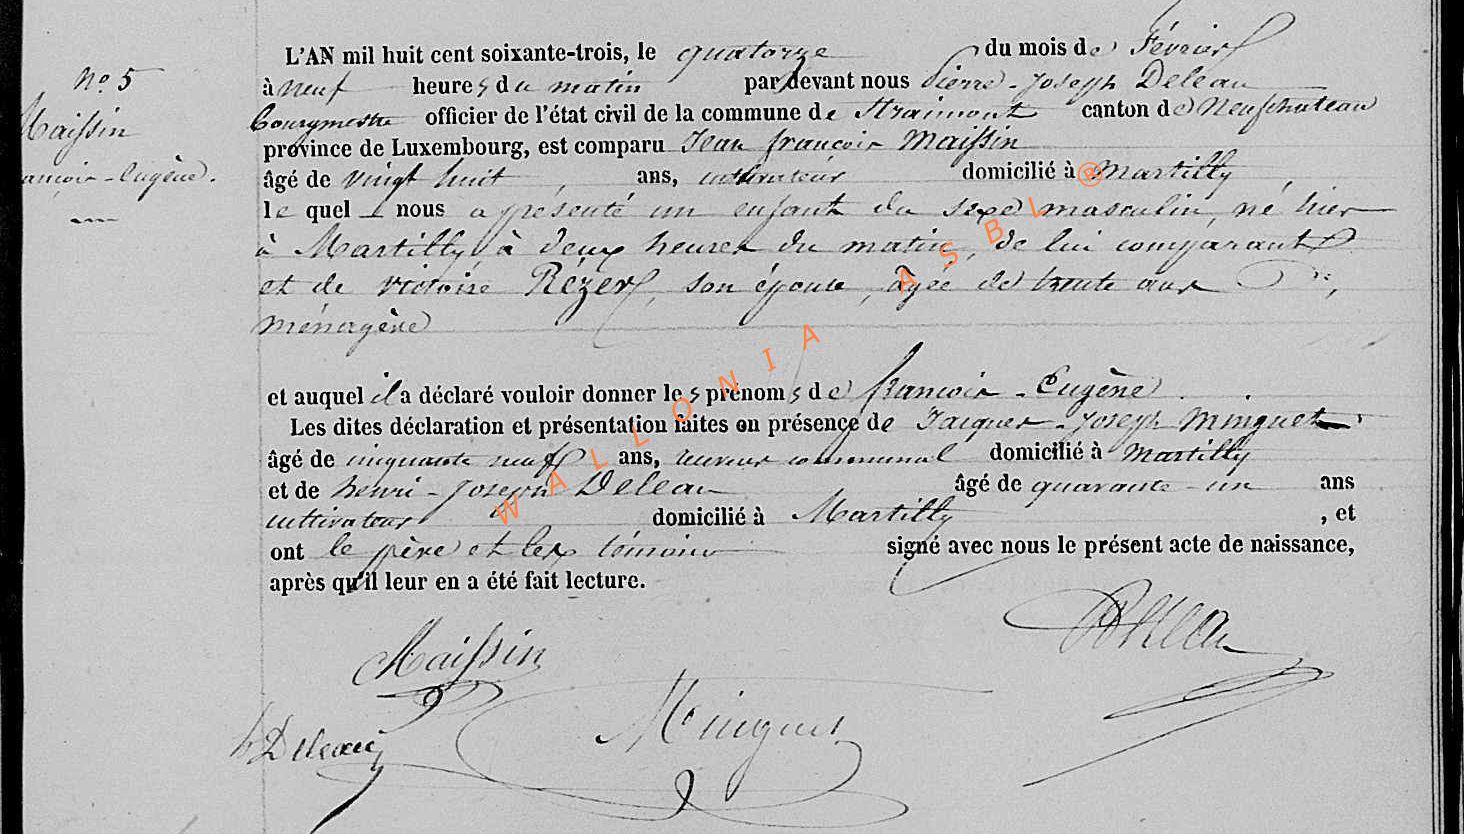 L'AN mil huit cent soixante-trois, le quatorze du mois de Février
N° 5
à neuf heures du matin par devant nous Pierre-Joseph Deleau
Bourgmestre officier de l'état civil de la commune de Straimont canton de Neufchateau
Maissin
province de Luxembourg, est comparu Jean françois Maissin
-Eugène.
âgé de vingt huit, ans, cultivateur domicilié à Martilly,
le quel nous a présenté un enfant du sexe masculin, né hier
à Martilly à deux heures du matin, de lui comparant
et de victoire Rézer, son épouse, agée de trente ans,
ménagère
et auquel il a déclaré vouloir donner les prénoms de francois-Eugène
Les dites déclaration et présentation faites en présence de Jacques-Joseph Minguet
âgé de cinquante neuf ans, receveur communal domicilié à Martilly
et de henri-Joseph Deleau âgé de quarante-un ans
cultivateur domicilié à Martilly, et
ont le père et les témoins signé avec nous le présent acte de naissance,
après qu'il leur en a été fait lecture.
Maissin
Deleau
Minguet
h Deleau
WALLONIA ASBL ®